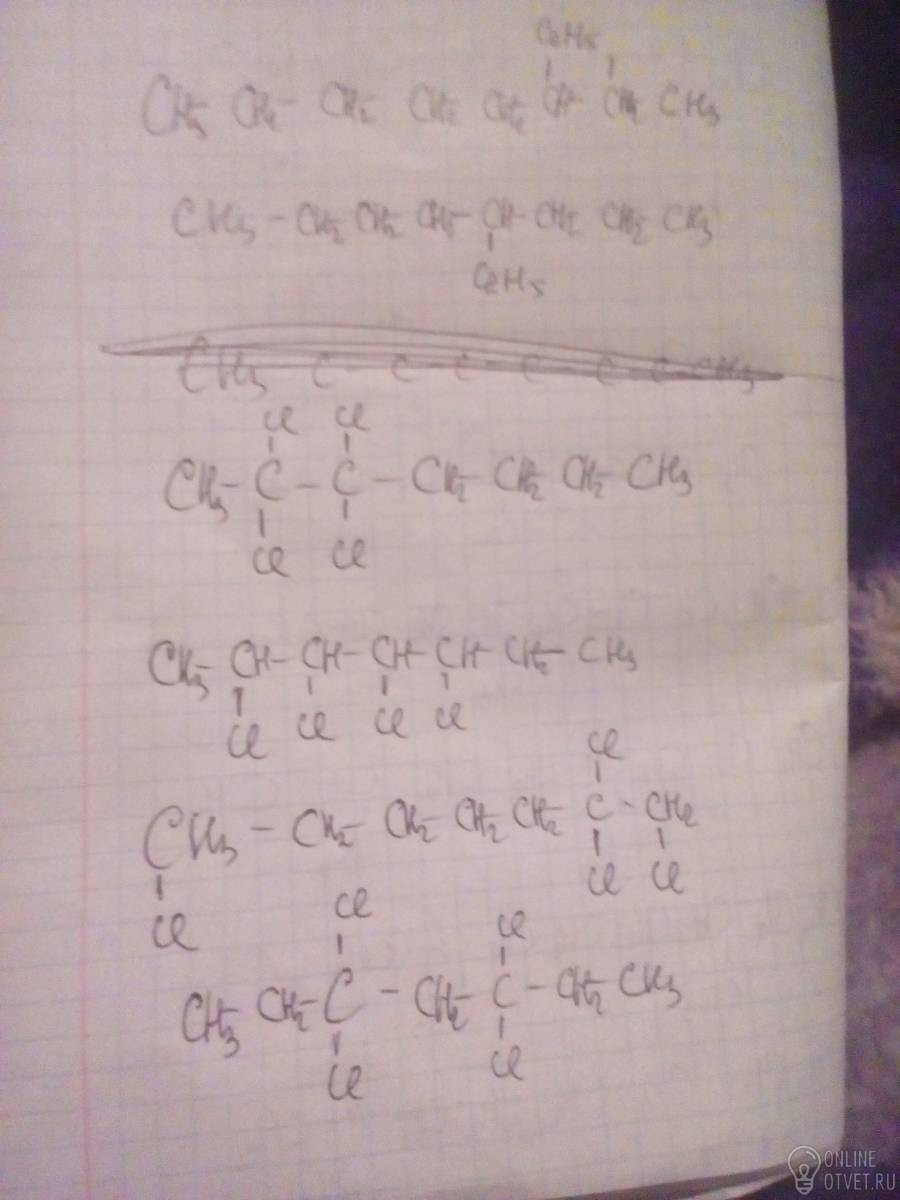 C2H5
CH3- CH2- CH2 CH2 CH2 CH- CH2 CH3
CH3 - CH2 CH2 CH2- CH- CH2 CH2- CH3
C2H5
CH3 C - C - C - C - C - C - CH3
Cl Cl
CH3- C - C - CH2- CH2- CH2- CH3
Cl Cl
CH3- CH- CH- CH- CH- CH2- CH3
Cl Cl Cl Cl
Cl
CH3 - CH2- CH2- CH2- CH2- C - CH2
Cl Cl Cl
Cl Cl
CH3- CH2- C - CH2- C - CH2- CH3
Cl Cl
ONLINE
OTVET.RU